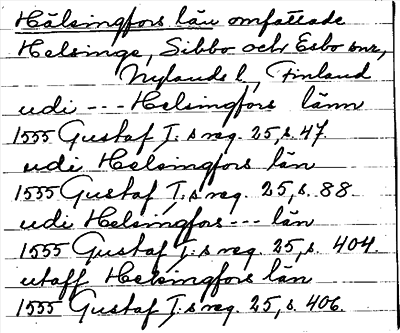 Hälsingfors län omfattade
Helsinge, Sibbo och Esbo snr,
Nylands l., Finland
udi --- Helsingfors länn
1555 Gustaf I:s reg. 25, s. 47.
udi Helsingfors län
1555 Gustaf I:s reg. 25, s. 88.
udi Helsingfos --- län
1555 Gustaf I:s reg. 25, s. 404.
utaff Helsingfors län
1555 Gustaf I:s reg. 25, s. 406.